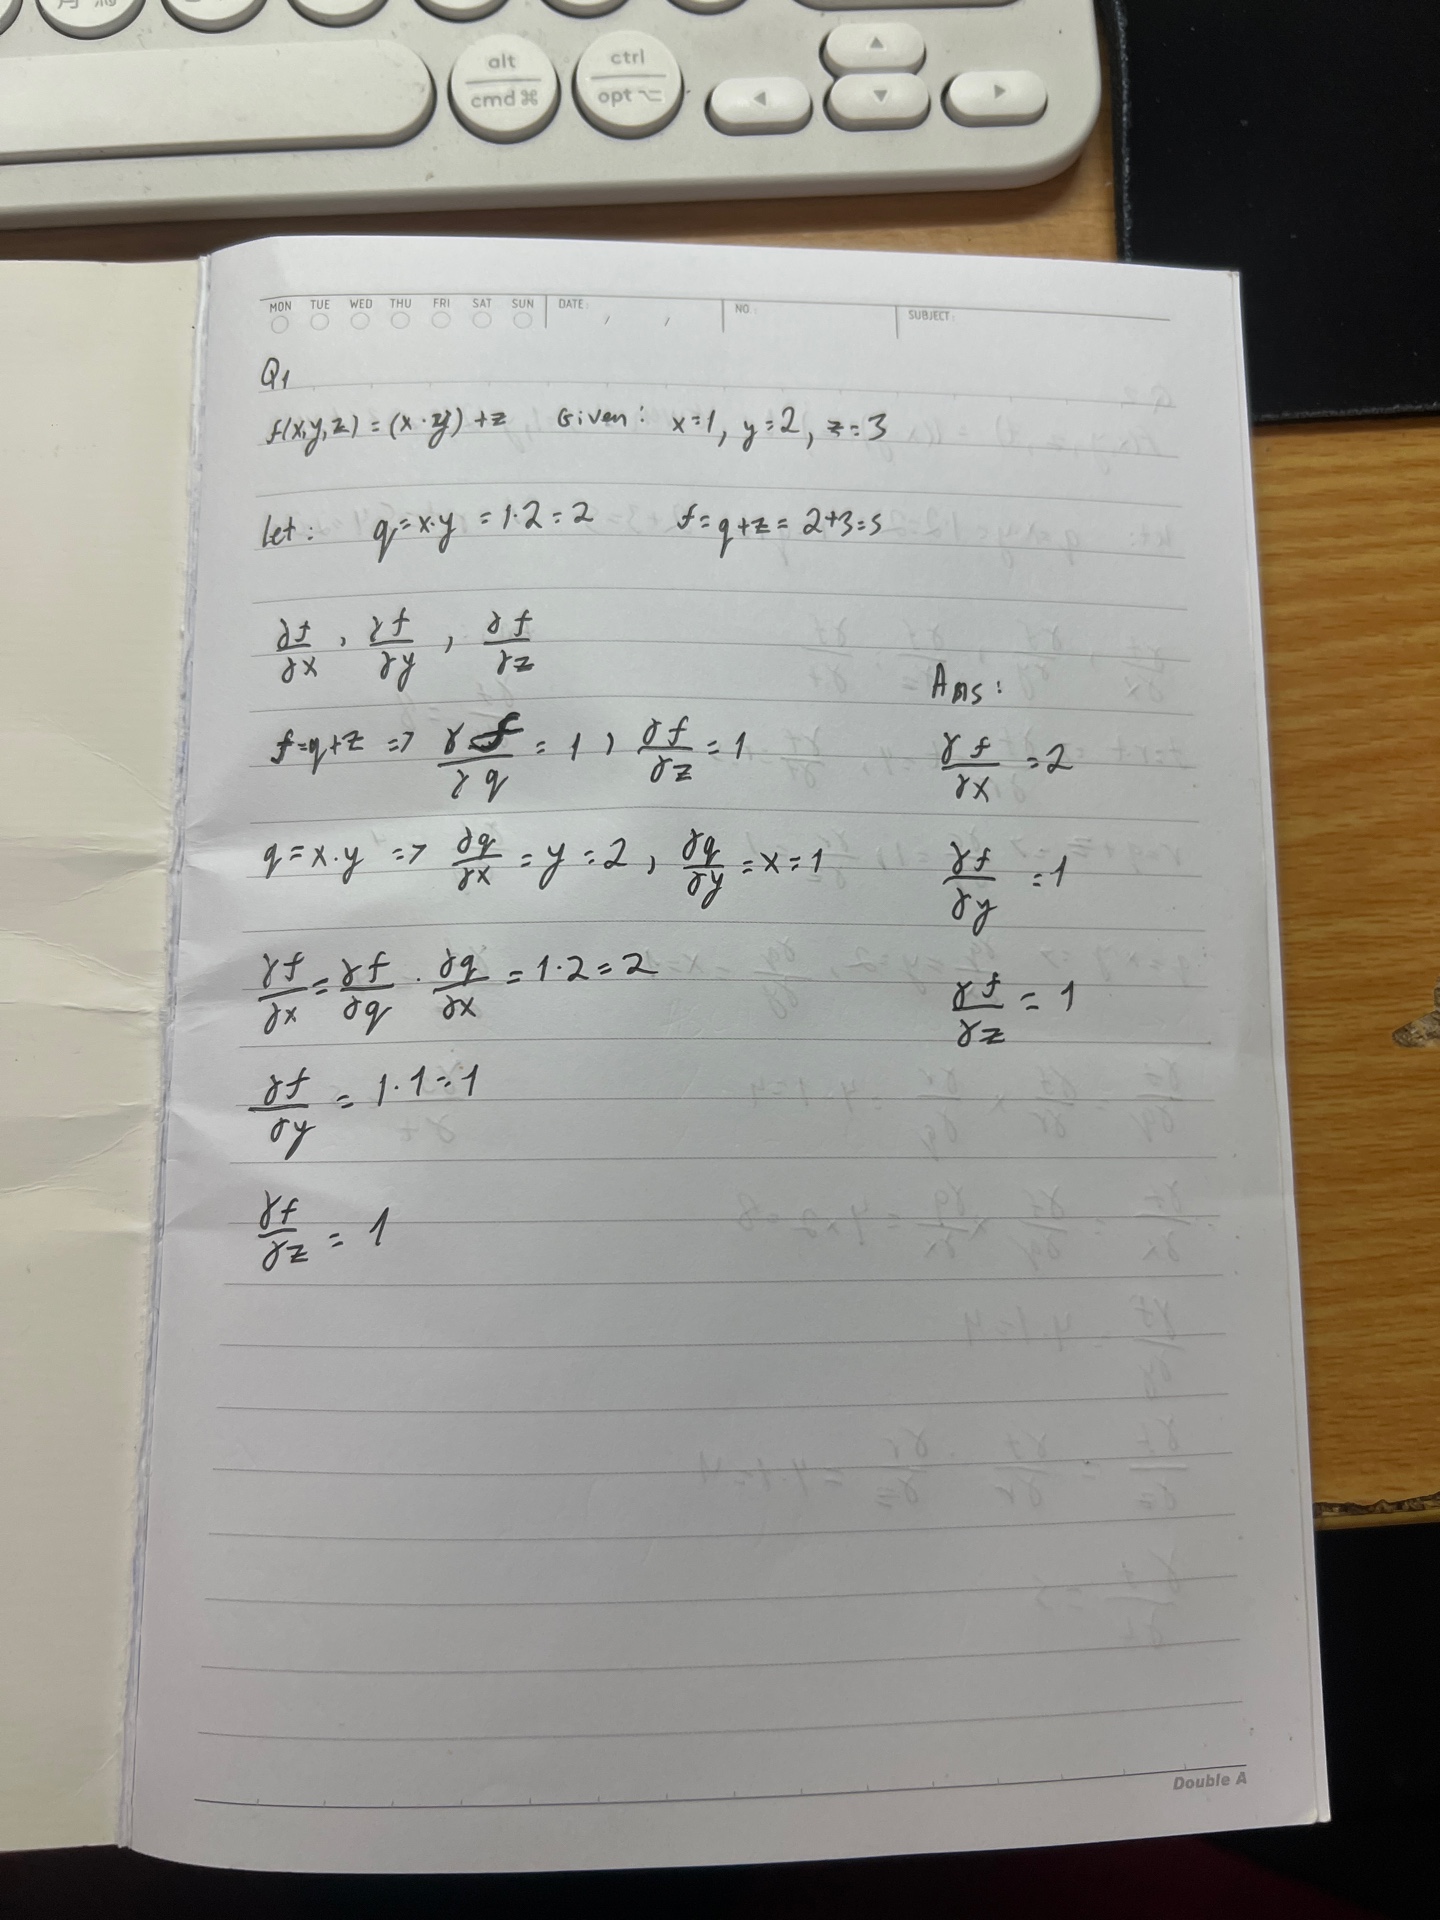 alt
cmd ⌘
ctrl
opt ⌥
◀ ▲ ▼ ▶
MON TUE WED THU FRI SAT SUN DATE: / / NO.: SUBJECT:
Q1
f(x,y,z) = (x·y) + z Given: x=1, y=2, z=3
Let: q=x·y = 1·2 = 2 f=q+z = 2+3=5
∂f/∂x, ∂f/∂y, ∂f/∂z
f=q+z => ∂f/∂q = 1, ∂f/∂z = 1
q=x·y => ∂q/∂x = y = 2, ∂q/∂y = x = 1
∂f/∂x = ∂f/∂q · ∂q/∂x = 1·2 = 2
∂f/∂y = 1·1 = 1
∂f/∂z = 1
Ans:
∂f/∂x = 2
∂f/∂y = 1
∂f/∂z = 1
Double A